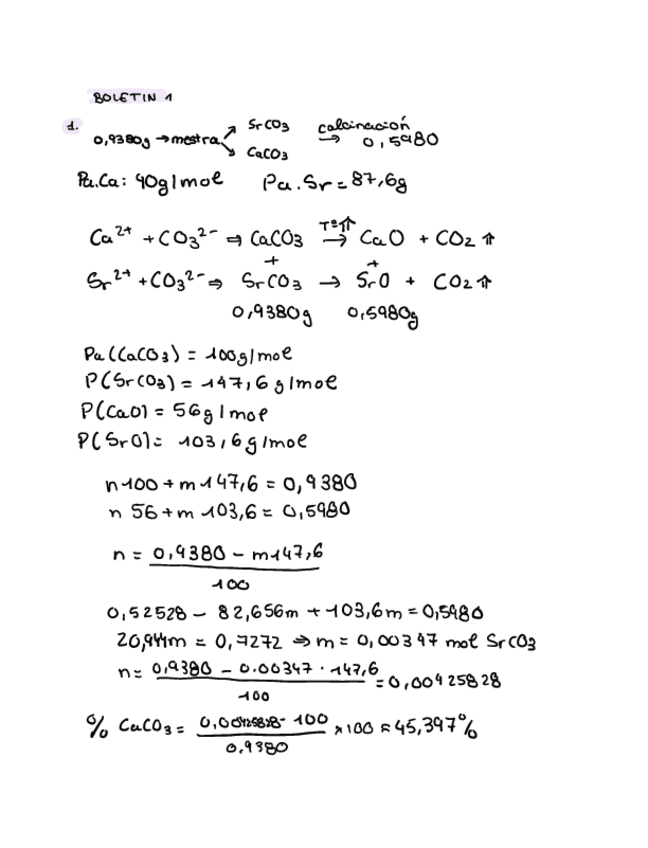 BOLETIN 1
1. 0,9380g → mestra ↗ SrCO3 ↘ CaCO3 calcinación → 0,5980
Pa.Ca: 40g/mol Pa.Sr = 87,6g
Ca²⁺ + CO3²⁻ ⇒ CaCO3 Tª⇑ → CaO + CO2 ⇑
+ +
Sr²⁺ + CO3²⁻ ⇒ SrCO3 → SrO + CO2 ⇑
0,9380g 0,5980g
Pa(CaCO3) = 100g/mol
P(SrCO3) = 147,6 g/mol
P(CaO) = 56g/mol
P(SrO) = 103,6g/mol
n·100 + m 147,6 = 0,9380
n 56 + m 103,6 = 0,5980
n = 0,9380 - m147,6
100
0,52528 - 82,656m + 103,6m = 0,5980
20,944m = 0,7272 ⇒ m = 0,00347 mol SrCO3
n = 0,9380 - 0.00347 · 147,6 = 0,00425828
100
% CaCO3 = 0,00425828 · 100 × 100 = 45,397%
0,9380